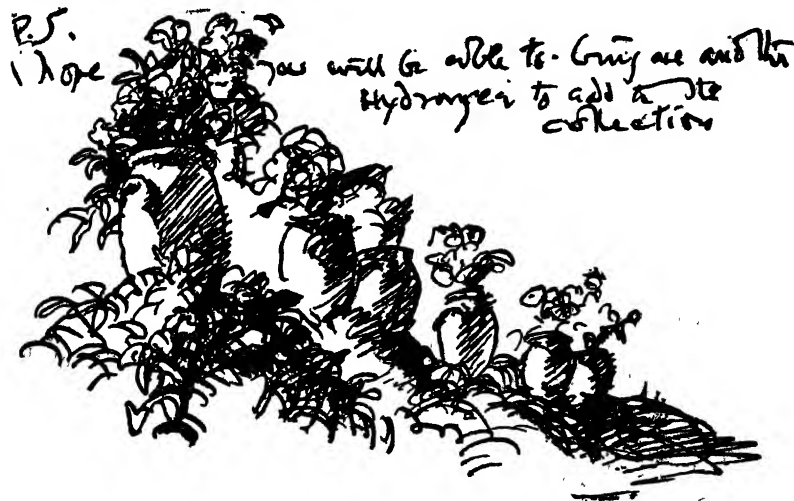 P.S.
i hope you will be able to bring me another
Hydrangea to add to the
collection